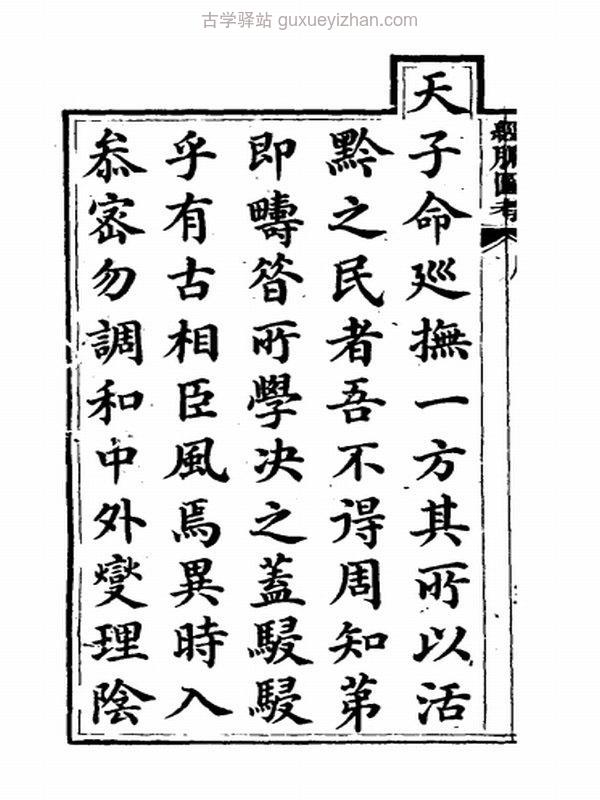 古学驿站 guxueyizhan.com
經脈圖考
天子命廵撫一方其所以活
黔之民者吾不得周知第
即疇昝所學决之葢駸駸
乎有古相臣風焉異時入
叅密勿調和中外燮理陰